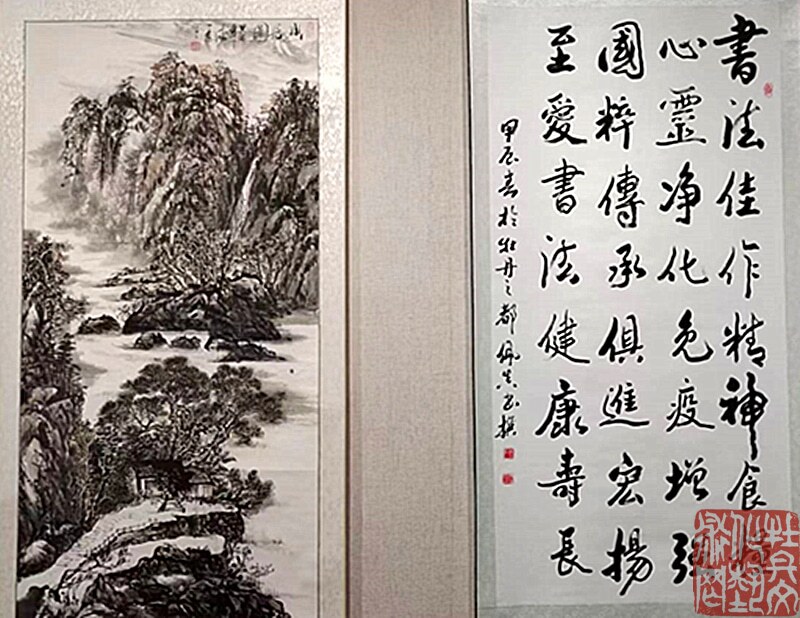 書法佳作精神食糧
心靈净化免疫增强
國粹傳承俱進宏揚
至愛書法健康壽長
甲辰春於牡丹之都